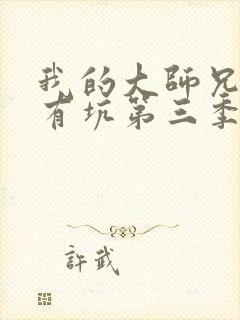 我的大師兄
有坑第三季
許武